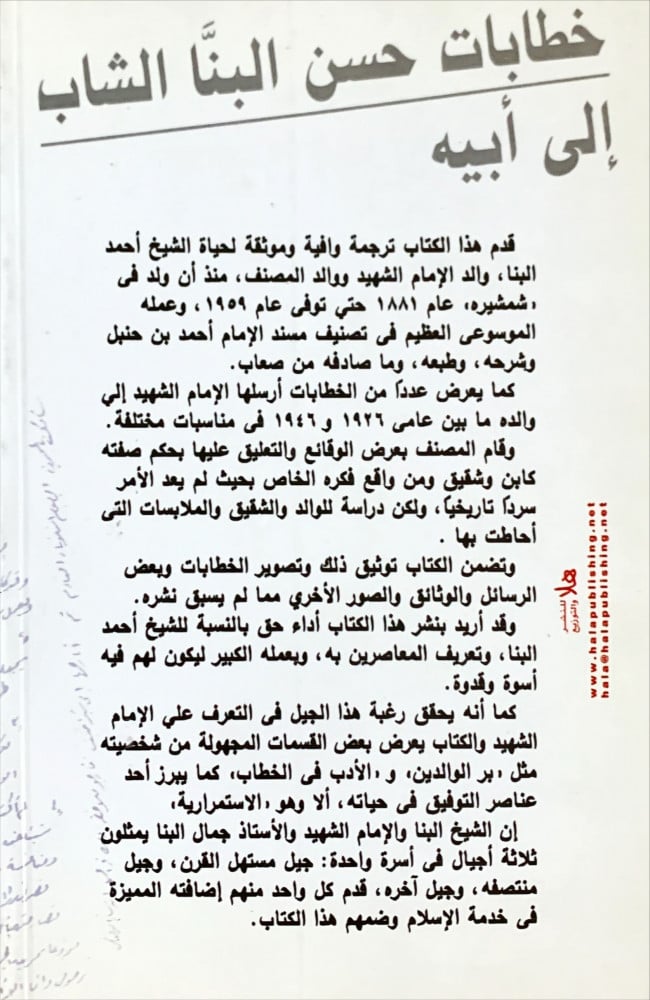 خطابات حسن البنَّا الشاب
إلى أبيه
قدم هذا الكتاب ترجمة وافية وموثقة لحياة الشيخ أحمد
البنا، والد الإمام الشهيد ووالد المصنف، منذ أن ولد فى
«شمشيره» عام ١٨٨١ حتي توفى عام ١٩٥٩، وعمله
الموسوعى العظيم فى تصنيف مسند الإمام أحمد بن حنبل
وشرحه، وطبعه، وما صادفه من صعاب.
كما يعرض عدداً من الخطابات أرسلها الإمام الشهيد إلي
والده ما بين عامى ١٩٢٦ و ١٩٤٦ فى مناسبات مختلفة.
وقام المصنف بعرض الوقائع والتعليق عليها بحكم صفته
كابن وشقيق ومن واقع فكره الخاص بحيث لم يعد الأمر
سرداً تاريخياً، ولكن دراسة للوالد والشقيق والملابسات التى
أحاطت بها .
وتضمن الكتاب توثيق ذلك وتصوير الخطابات وبعض
الرسائل والوثائق والصور الأخري مما لم يسبق نشره.
وقد أريد بنشر هذا الكتاب أداء حق بالنسبة للشيخ أحمد
البنا، وتعريف المعاصرين به، وبعمله الكبير ليكون لهم فيه
أسوة وقدوة.
كما أنه يحقق رغبة هذا الجيل فى التعرف علي الإمام
الشهيد والكتاب يعرض بعض القسمات المجهولة من شخصيته
مثل «بر الوالدين» و «الأدب فى الخطاب» كما يبرز أحد
عناصر التوفيق فى حياته، ألا وهو «الاستمرارية»
إن الشيخ البنا والإمام الشهيد والأستاذ جمال البنا يمثلون
ثلاثة أجيال فى أسرة واحدة: جيل مستهل القرن، وجيل
منتصفه، وجيل آخره، قدم كل واحد منهم إضافته المميزة
فى خدمة الإسلام وضمهم هذا الكتاب.
هلا
للنشر
والتوزيع
www.halapublishing.net
hala@halapublishing.net